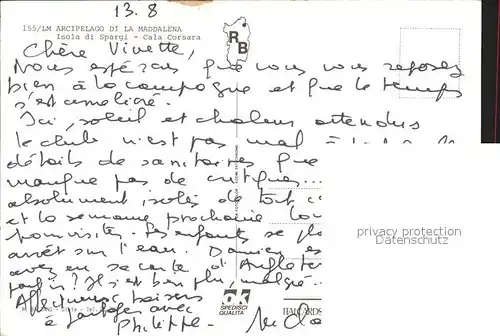 13.8
155/LM ARCIPELAGO DI LA MADDALENA
Isola di Spargi - Cala Corsara
RB
Chère Vivette,
Nous espérons que vous vous reposez
bien à la campagne et que le temps
s'est amélioré.
Ici, soleil et chaleur attendus
le club n'est pas mal
détails de sanitaires que
manque pas de critiques...
absolument isolés de tout
et la semaine prochaine
Les enfants se
arrêt sur l'eau. Damien
avez en sa carte d'Anglete
? Il s'est bien plu, malgré
Affectueux baisers
à partager avec
Philippe.
privacy protection
Datenschutz
ok
SPEDISCI
QUALITÀ
ITALCARDS